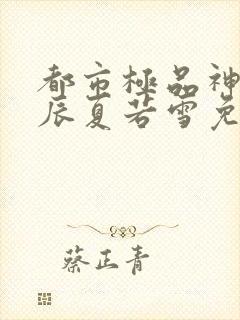 都市極品神
辰夏若雪免
蔡正青